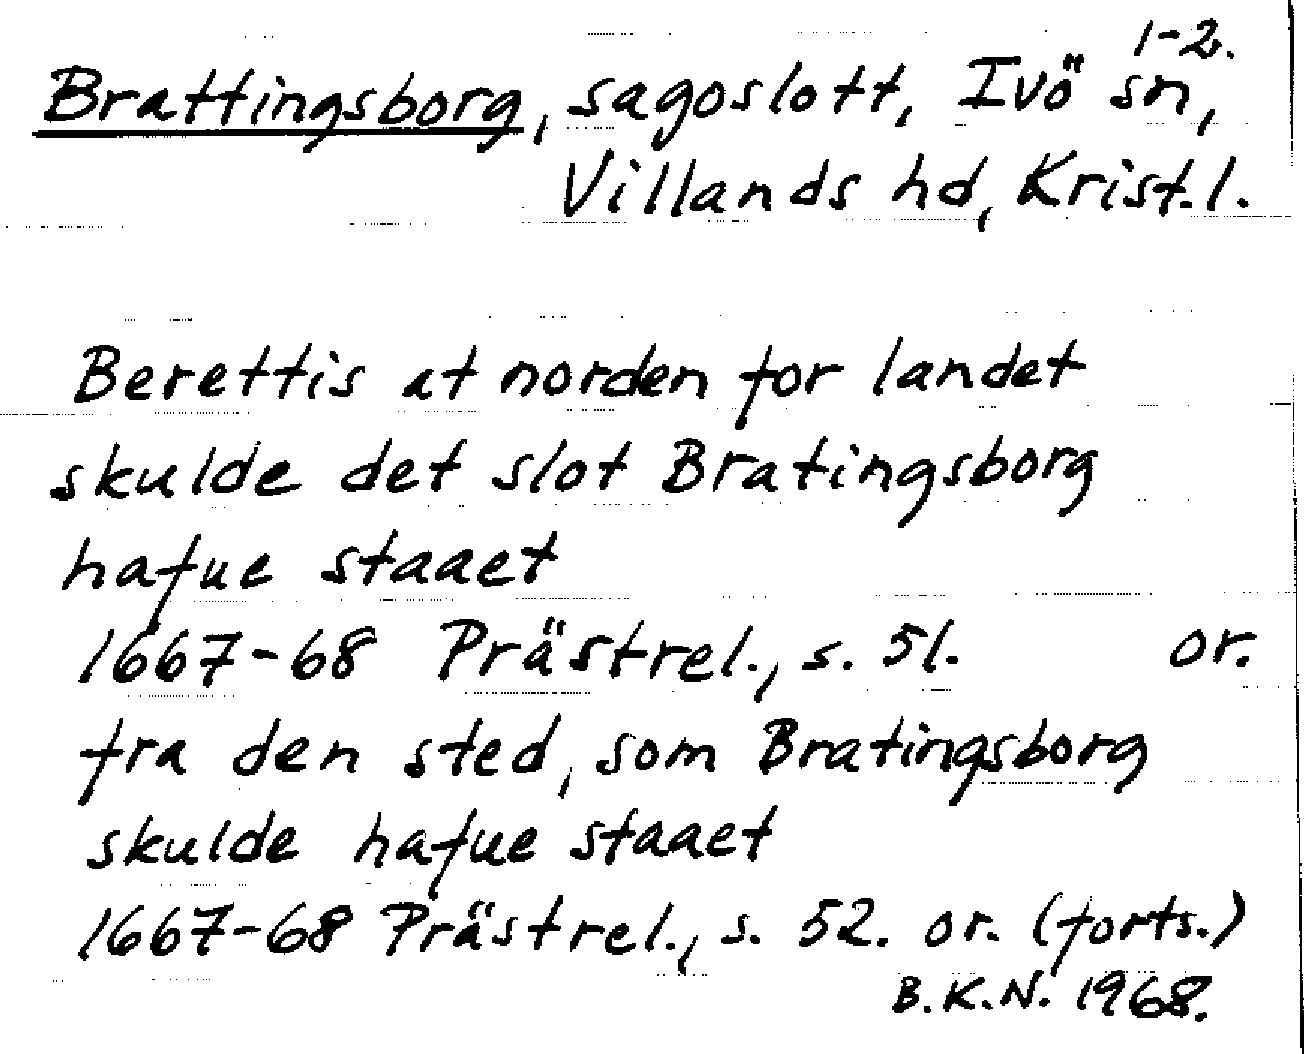 1-2.
Brattingsborg, sagoslott, Ivö sn,
Villands hd, Krist.l.
Berettis at norden for landet
skulde det slot Bratingsborg
hafue staaet
1667-68 Prästrel., s. 51. or.
fra den sted, som Bratingsborg
skulde hafue staaet
1667-68 Prästrel., s. 52. or. (forts.)
B.K.N. 1968.